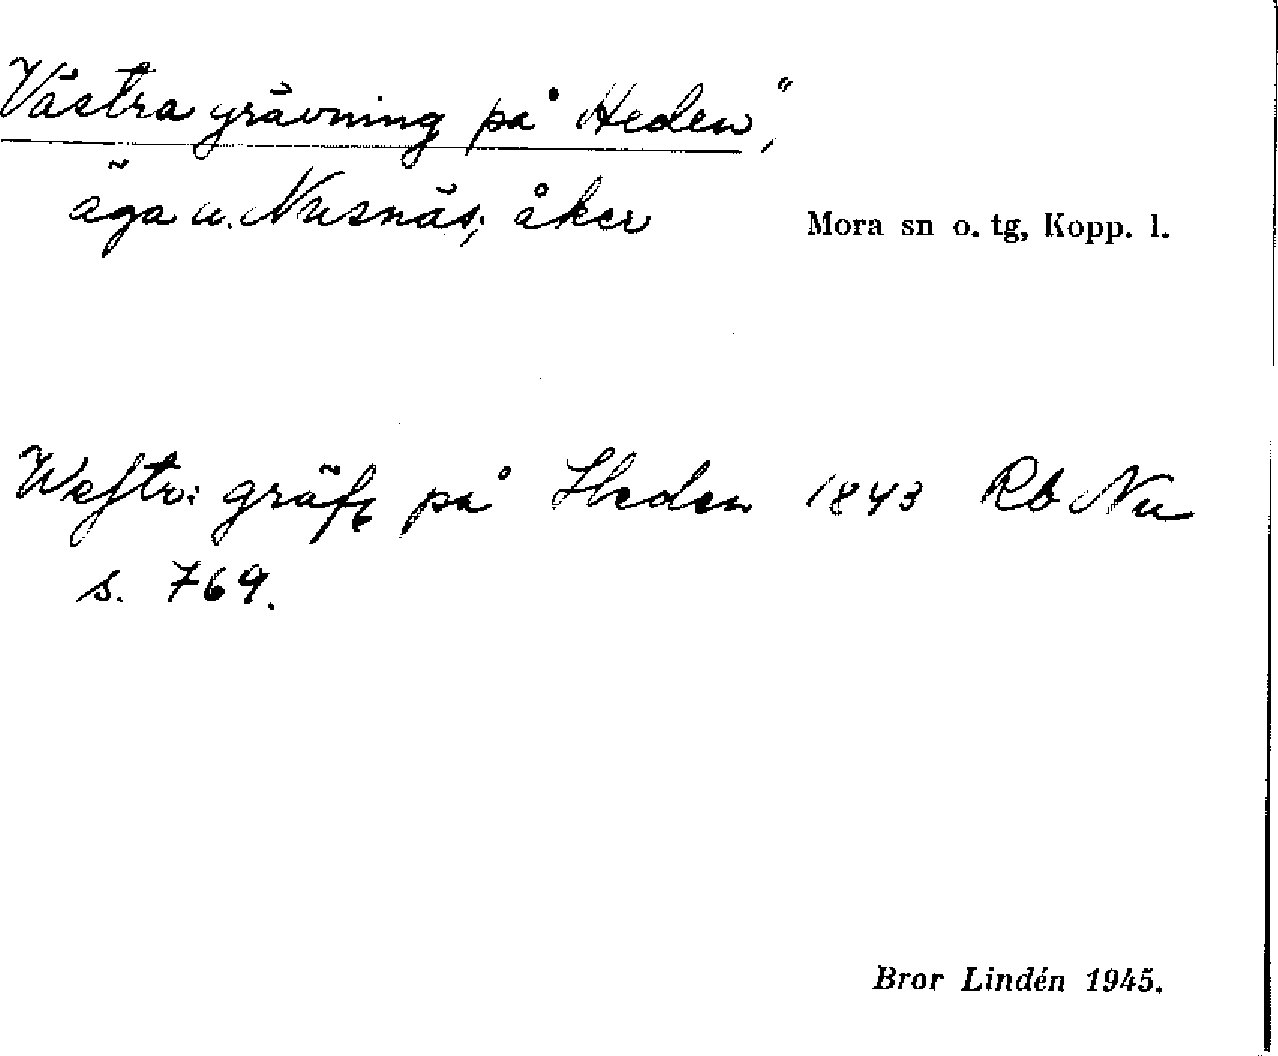 Västra grävning på Heden",
äga u. Nusnäs; åker
Mora sn o. tg, Kopp. l.
Westr: gräfn på Heden 1843 Rb Nu
s. 769.
Bror Lindén 1945.